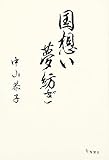 国想い
夢紡ぎ
中山恭子